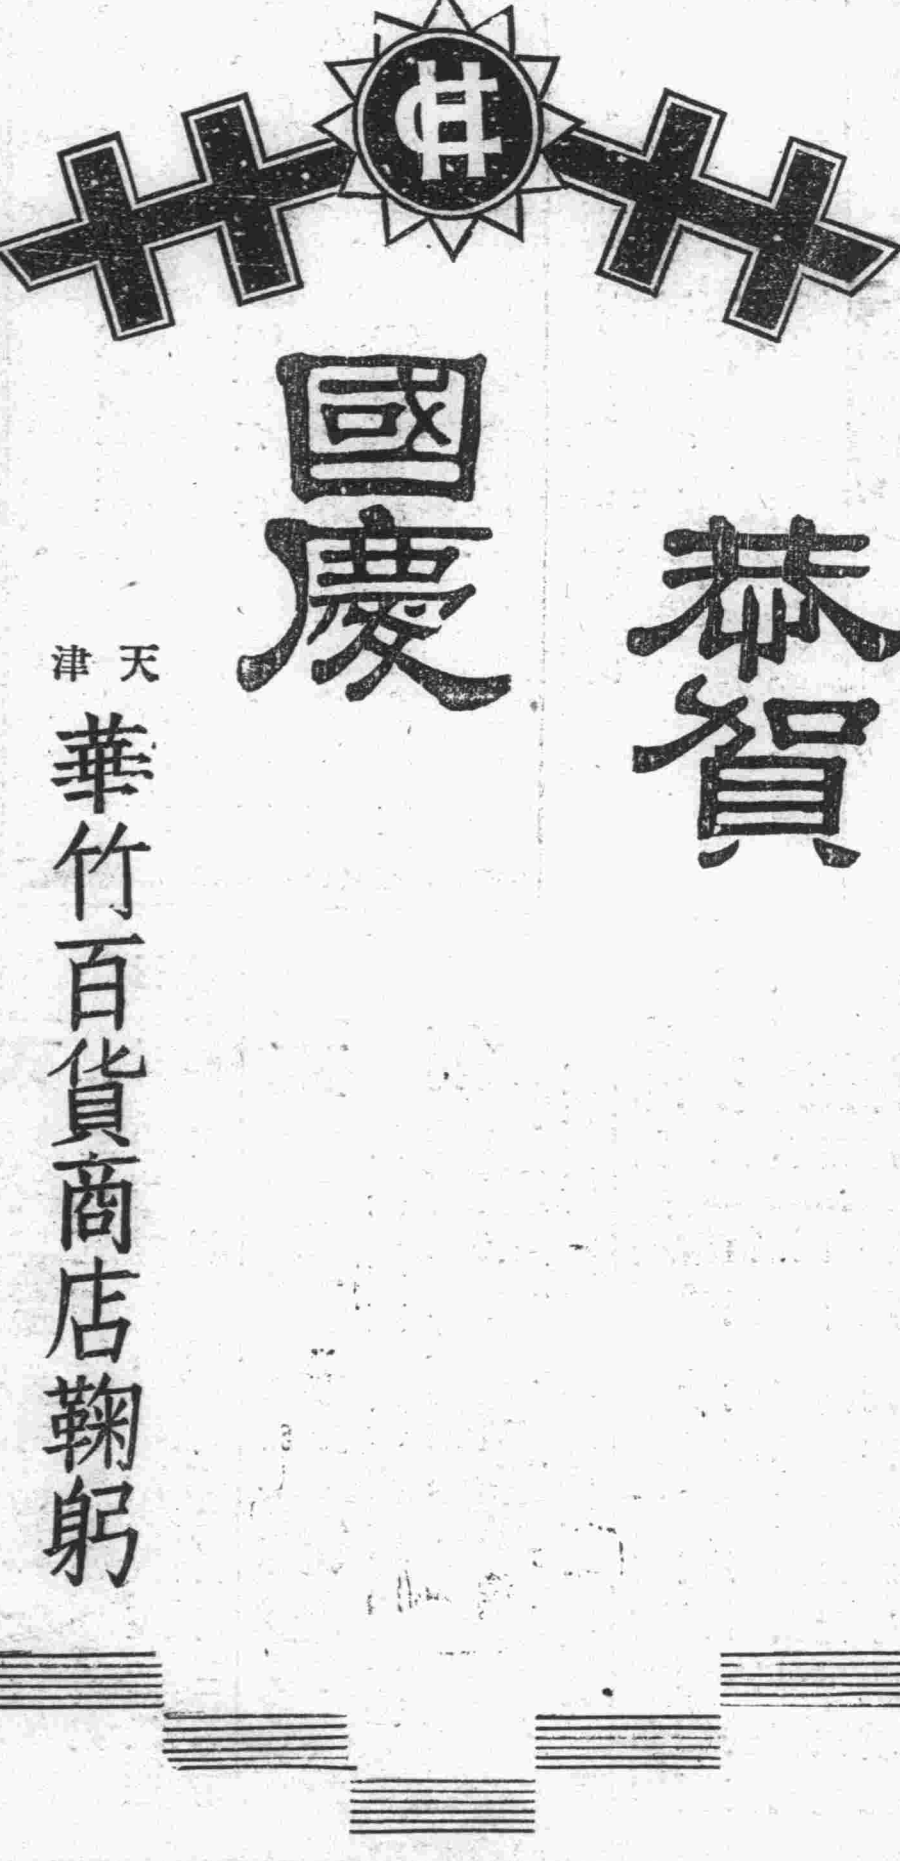 恭賀
國慶
天津
華竹百貨商店鞠躬